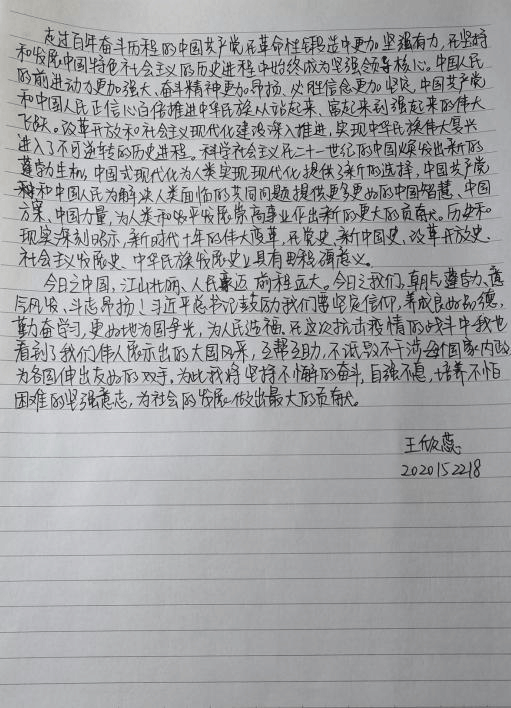 走过百年奋斗历程的中国共产党在革命性锻造中更加坚强有力,在坚持
和发展中国特色社会主义的历史进程中始终成为坚强领导核心。中国人民
的前进动力更加强大、奋斗精神更加昂扬、必胜信念更加坚定,中国共产党
和中国人民正信心百倍推进中华民族从站起来、富起来到强起来的伟大
飞跃。改革开放和社会主义现代化建设深入推进,实现中华民族伟大复兴
进入了不可逆转的历史进程。科学社会主义在二十一世纪的中国焕发出新的
蓬勃生机,中国式现代化为人类实现现代化提供了新的选择,中国共产党
和中国人民为解决人类面临的共同问题提供更多更好的中国智慧、中国
方案、中国力量,为人类和平发展崇高事业作出新的更大的贡献。历史和
现实深刻昭示,新时代十年的伟大变革,在党史、新中国史、改革开放史、
社会主义发展史、中华民族发展史上具有里程碑意义。
今日之中国,江山壮丽、人民豪迈、前程远大。今日之我们,朝气蓬勃、意
气风发、斗志昂扬!习近平总书记鼓励我们要坚定信仰,养成良好品德,
勤奋学习,更好地为国争光,为人民造福。在这次抗击疫情的战斗中我也
看到了我们伟人展示出的大国风采,互帮互助,不诋毁不干涉每个国家内政
为各国伸出友好的双手。为此我将坚持不懈的奋斗,自强不息,培养不怕
困难的坚强意志,为社会的发展做出最大的贡献。
王欣蕊
2020152218